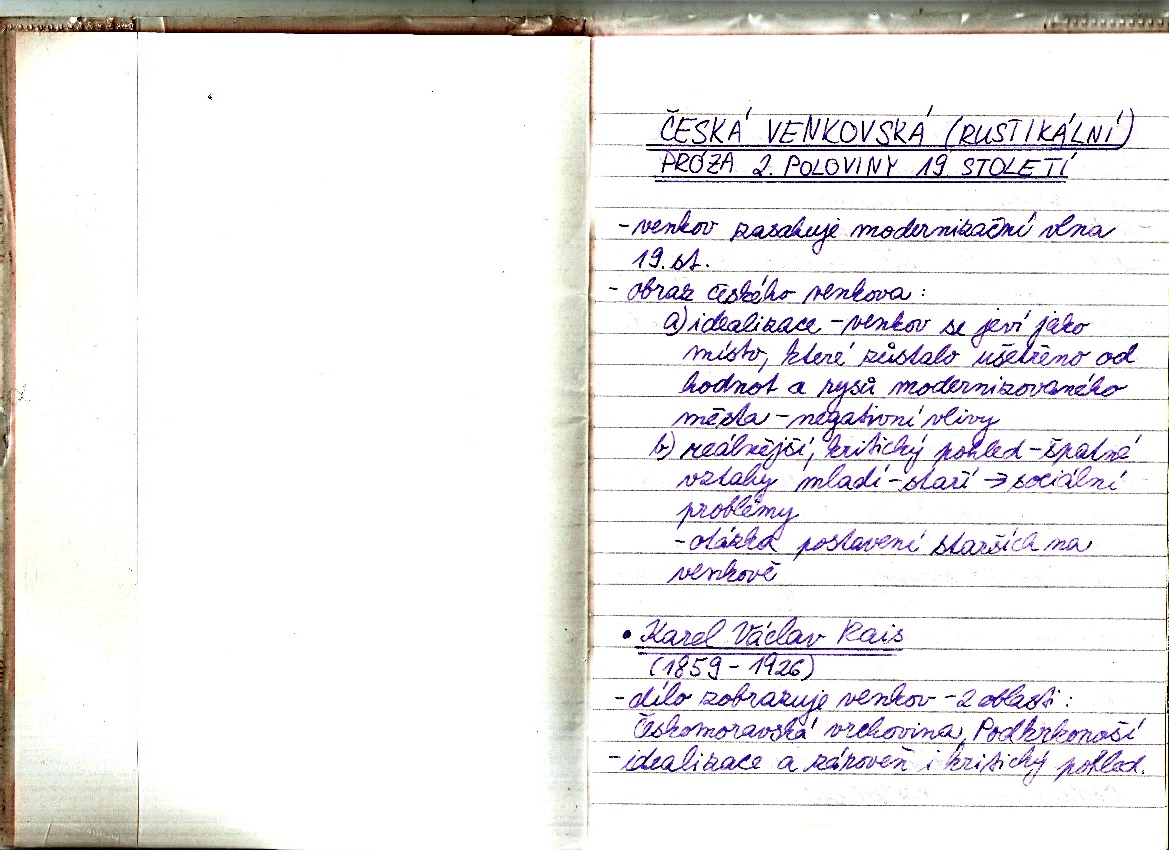 ČESKÁ VENKOVSKÁ (RUSTIKÁLNÍ)
PRÓZA 2. POLOVINY 19 STOLETÍ
- venkov zasahuje modernizační vlna
19. st.
- obraz českého venkova :
a) idealizace - venkov se jeví jako
místo, které zůstalo ušetřeno od
hodnot a rysů modernizovaného
města - negativní vlivy
b) reálnější, kritický pohled - špatné
vztahy mladí - staří → sociální
problémy
- otázka postavení starších na
venkově
• Karel Václav Rais
(1859 - 1926)
- dílo zobrazuje venkov - 2 oblasti :
Českomoravská vrchovina, Podkrkonoší
- idealizace a zároveň i kritický pohled.